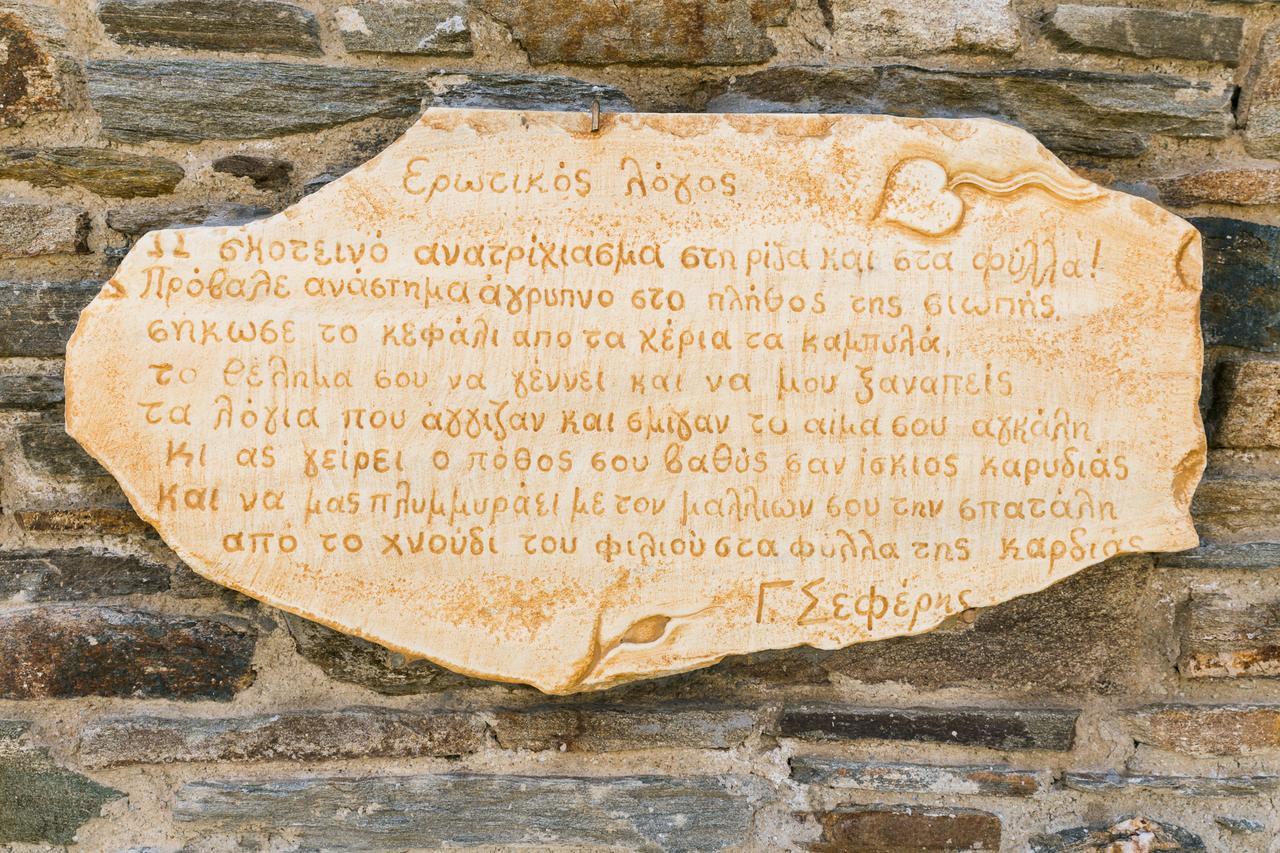 Ερωτικός λόγος
Ω σκοτεινό ανατρίχιασμα στη ρίζα και στα φύλλα!
Πρόβαλε ανάστημα άγρυπνο στο πλήθος της σιωπής,
σήκωσε το κεφάλι απο τα χέρια τα καμπυλά,
το θέλημα σου να γέννει και να μου ξαναπείς
τα λόγια που άγγιζαν και σμίγαν το αίμα σου αγκάλη
Κι ας γείρει ο πόθος σου βαθύς σαν ίσκιος καρυδιάς
Και να μας πλυμμυράει με τον μαλλιων σου την σπατάλη
από το χνούδι του φιλιού στα φύλλα της καρδιάς
Γ Σεφέρης